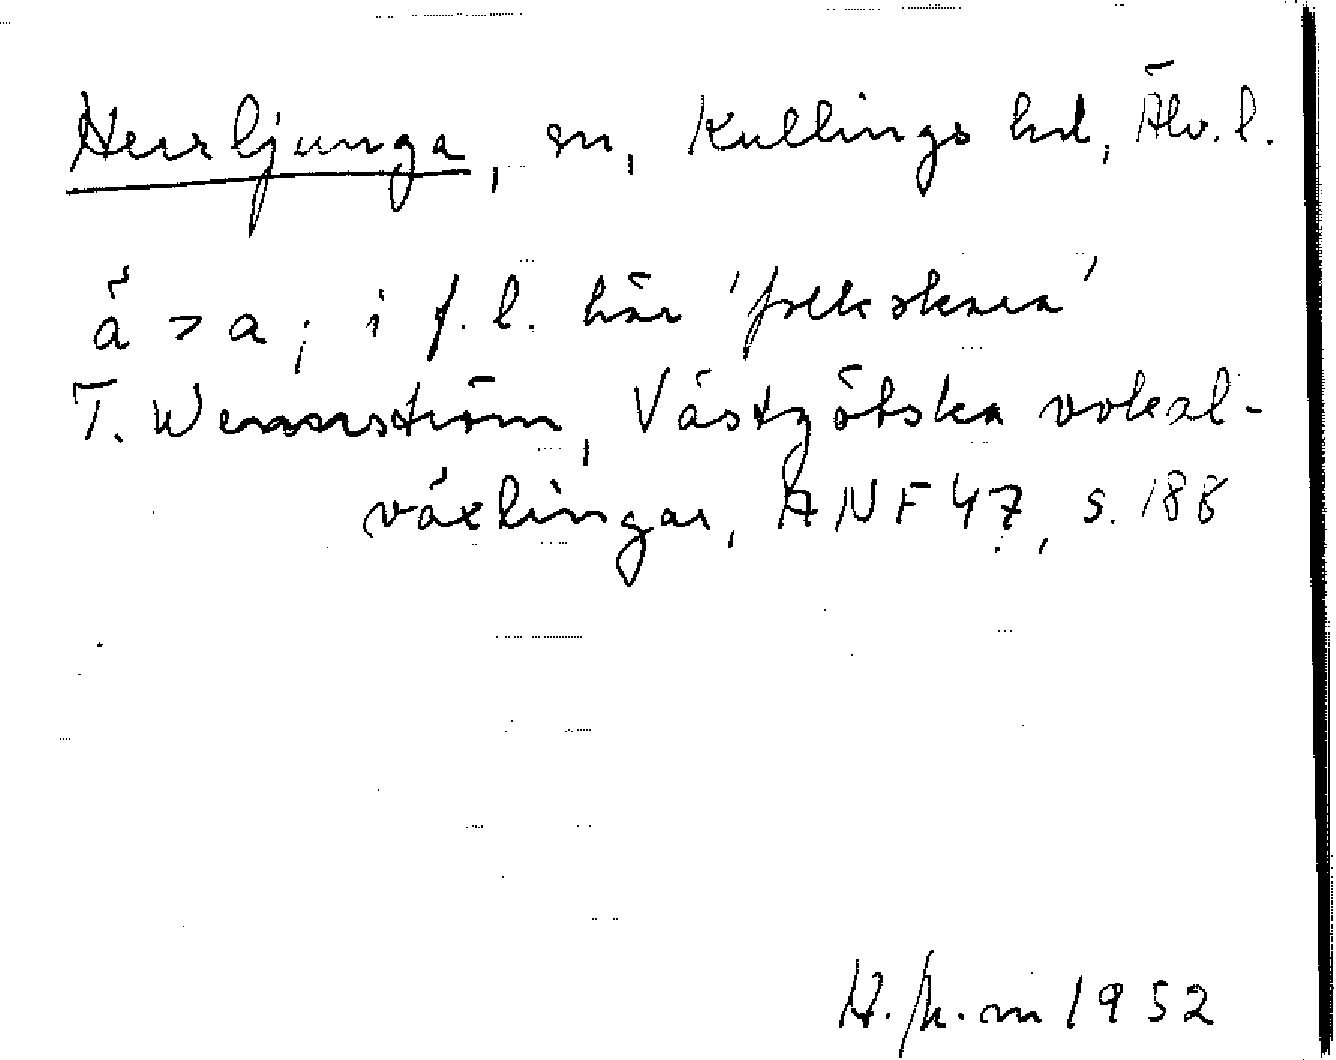 Herrljunga, sn, Kullings hd, Älv. l.
ä > a; i f. l. här 'folkskara'
T. Wennström, Västgötska vokal-
växlingar, ANF 47, s. 188
1952